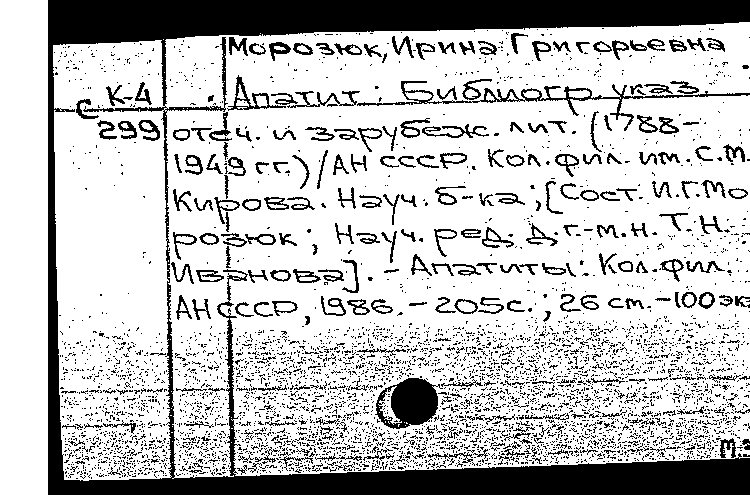 Морозюк, Ирина Григорьевна
С К-4 Апатит: Библиогр. указ.
299 отеч. и зарубеж. лит. (1788-
1949 гг.)/АН СССР. Кол. фил. им. С.М.
Кирова. Науч. б-ка; [Сост. И.Г. Мо
розюк; Науч. ред. д. г.-м.н. Т.Н.
Иванова]. - Апатиты: Кол. фил.
АН СССР, 1986. - 205 с.; 26 см. - 100 экз